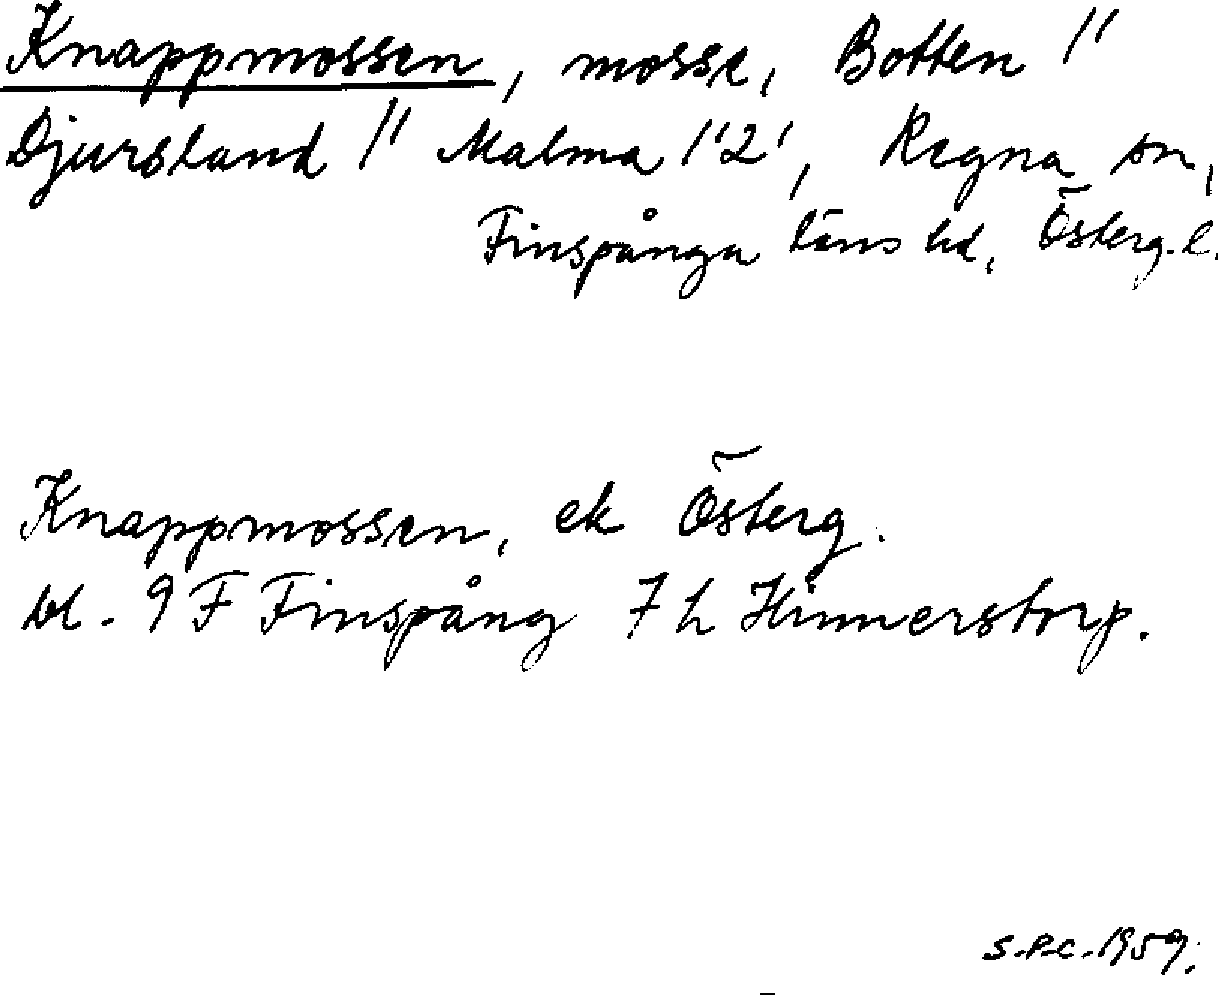 Knappmossen, mosse, Botten 1'
Djursland 1' Malma 1'2', Regna sn,
Finspånga läns hd, Österg. l.
Knappmossen, ek Österg.
bl. 9 F Finspång 7 h Hinnerstorp.
S.P.C. 1959.